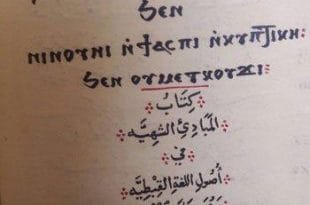 ϧⲉⲛ
ⲛⲓⲛⲟⲩⲛⲓ ⲛ̀ϯⲁⲥⲡⲓ ⲛ̀ⲕⲩⲡϯⲕⲏ:
ϧⲉⲛ ⲟⲩⲙⲉⲧⲕⲟⲩϫⲓ:
كِتَابُ
المَبَادِئِ الشَّهِيَّه
فِي
أُصُولِ اللُّغَةِ القِبْطِيَّه